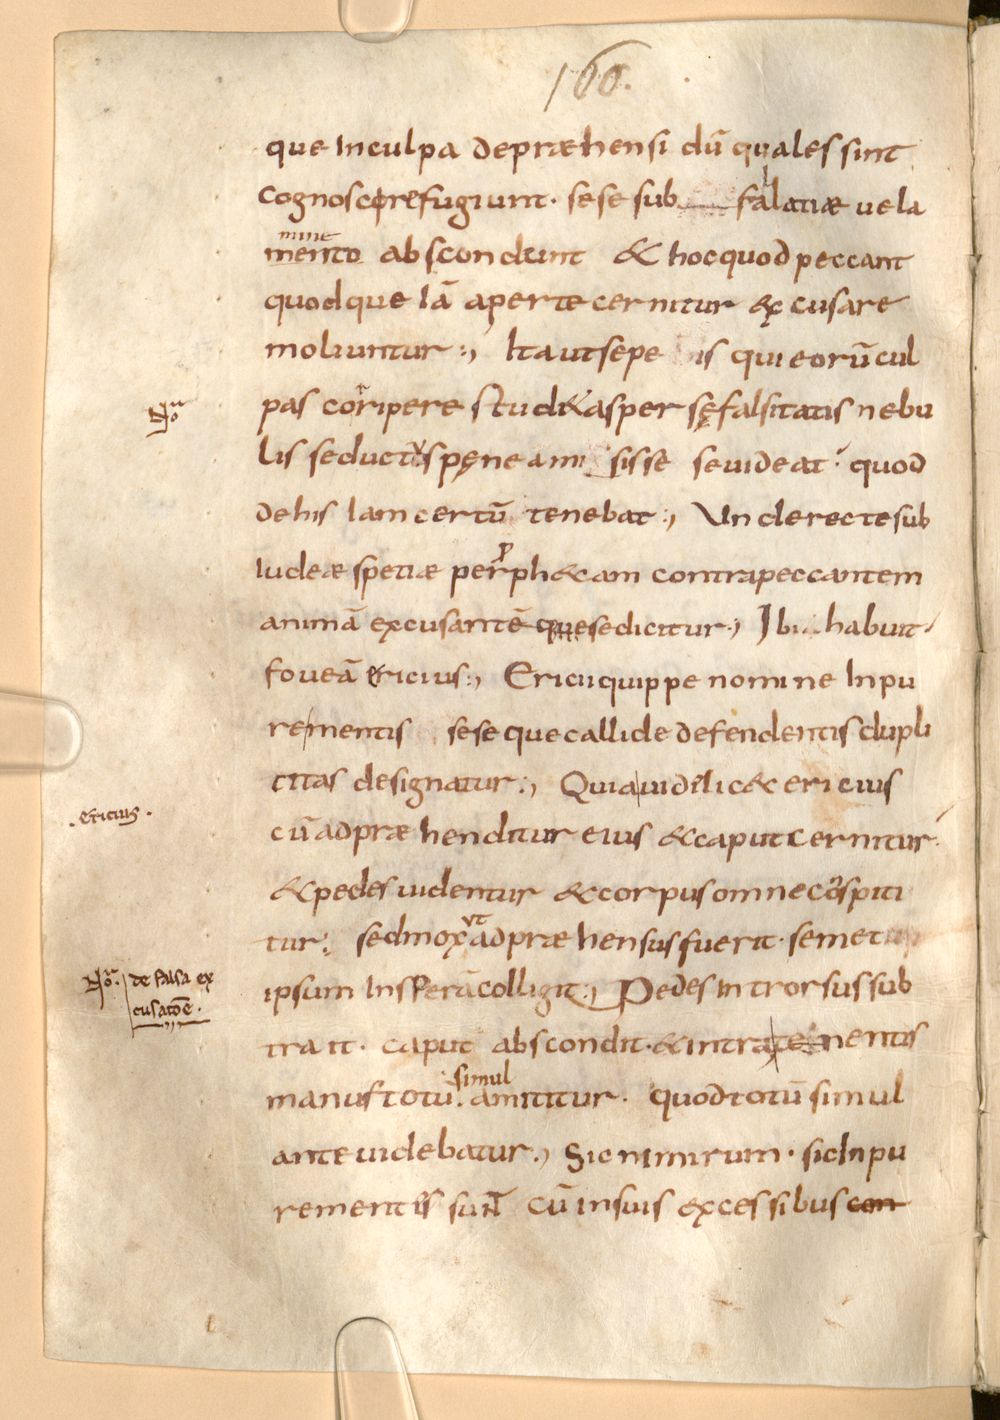 160.
que inculpa depraehensi dū quales sint
cognosci refugiunt· sese sub falatiae uela
mine
mento abscondunt & hoc quod peccant
quodque iā aperte cernitur excusare
moliuntur:, Ita ut sepe is qui eorū cul
Noͣ
pas corripere stud& aspersę falsitatis nebu
lis seductus pęne amisisse se uideat· quod
de his iam certū tenebat:, Unde recte sub
iudeae spetiae per prph&am contra peccantem
animā excusantē se dicitur:, Ibi habuit
foueā ericius:, Ericii quippe nomine inpu
re mentis seseque callide defendentis dupli
citas designatur:, Quia uidelic& ericius
·ericius·
cū adpraehenditur eius & caput cernitur·
& pedes uidentur & corpus omne cōspiti
tur; sed mox ut adpraehensus fuerit· semet
Noͣ· de falsa ex
cusatōe·
ipsum in sperā colligit:, Pedes introrsus sub
trait· caput abscondit· & intra tenentis
manus totū simul amittitur· quod totū simul
ante uidebatur:, Sic nimirum· sic inpu
re mentes sunt cū in suis excessibus con